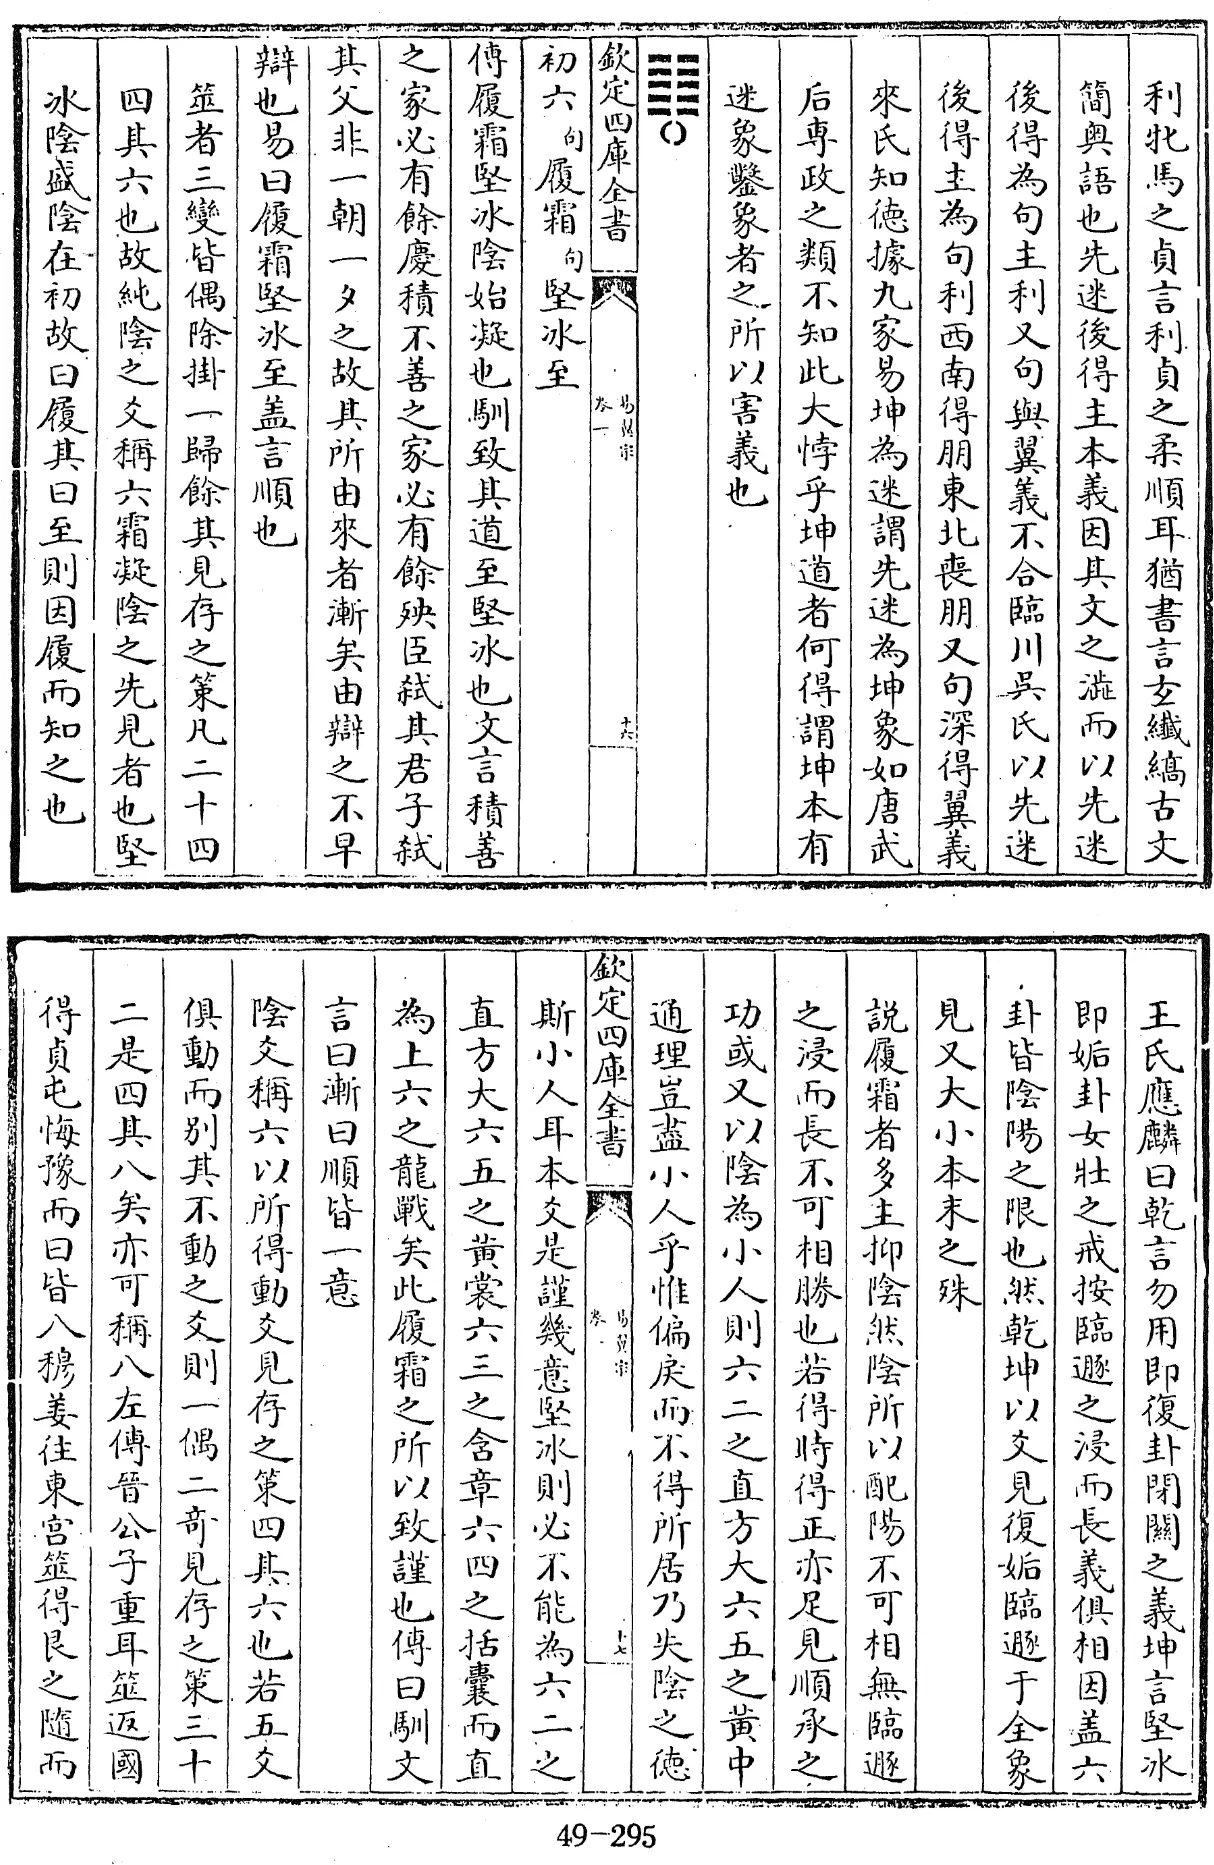 利牝馬之貞言利貞之柔順耳猶書言玄纖縞古文
簡奥語也先迷後得主本義因其文之澁而以先迷
後得為句主利又句與翼義不合臨川吳氏以先迷
後得主為句利西南得朋東北喪朋又句深得翼義
來氏知德據九家易坤為迷謂先迷為坤象如唐武
后專政之類不知此大悖乎坤道者何得謂坤本有
迷象鑿象者之所以害義也
欽定四庫全書
易翼宗
卷一
十六
初六句履霜句堅冰至
傳履霜堅冰陰始凝也馴致其道至堅冰也文言積善
之家必有餘慶積不善之家必有餘殃臣弑其君子弑
其父非一朝一夕之故其所由來者漸矣由辯之不早
辯也易曰履霜堅冰至盖言順也
筮者三變皆偶除掛一歸餘其見存之策凡二十四
四其六也故純陰之爻稱六霜凝陰之先見者也堅
冰陰盛陰在初故曰履其曰至則因履而知之也
王氏應麟曰乾言勿用即復卦閉關之義坤言堅冰
即姤卦女壯之戒按臨遯之浸而長義俱相因盖六
卦皆陰陽之限也然乾坤以爻見復姤臨遯于全象
見又大小本末之殊
説履霜者多主抑陰然陰所以配陽不可相無臨遯
之浸而長不可相勝也若得時得正亦足見順承之
功或又以陰為小人則六二之直方大六五之黄中
通理豈盡小人乎惟偏戾而不得所居乃失陰之德
欽定四庫全書
易翼宗
卷一
十七
斯小人耳本爻是謹幾意堅冰則必不能為六二之
直方大六五之黄裳六三之含章六四之括囊而直
為上六之龍戰矣此履霜之所以致謹也傳曰馴文
言曰漸曰順皆一意
陰爻稱六以所得動爻見存之策四其六也若五爻
俱動而别其不動之爻則一偶二竒見存之策三十
二是四其八矣亦可稱八左傳晉公子重耳筮返國
得貞屯悔豫而曰皆八穆姜往東宫筮得艮之隨而
49-295